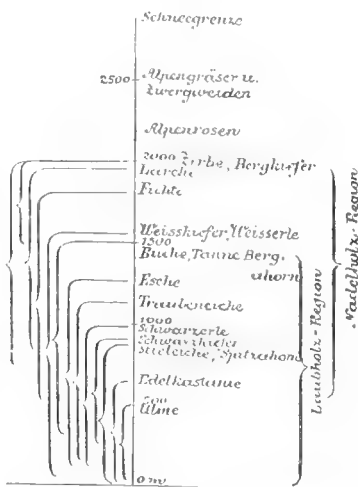 Schneegrenze
2500 Alpengräser u.
Zwergweiden
Alpenrosen
2000 Zirbe, Bergkiefer
Lärche
Fichte
Weisskiefer, Weisserle
1500
Buche, Tanne Berg-
ahorn
Esche
Traubeneiche
1000
Schwarzerle
Schwarzkiefer
Stieleiche, Spitzahorn
Edelkastanie
500
Ulme
0 m
Laubholz-Region
Nadelholz-Region